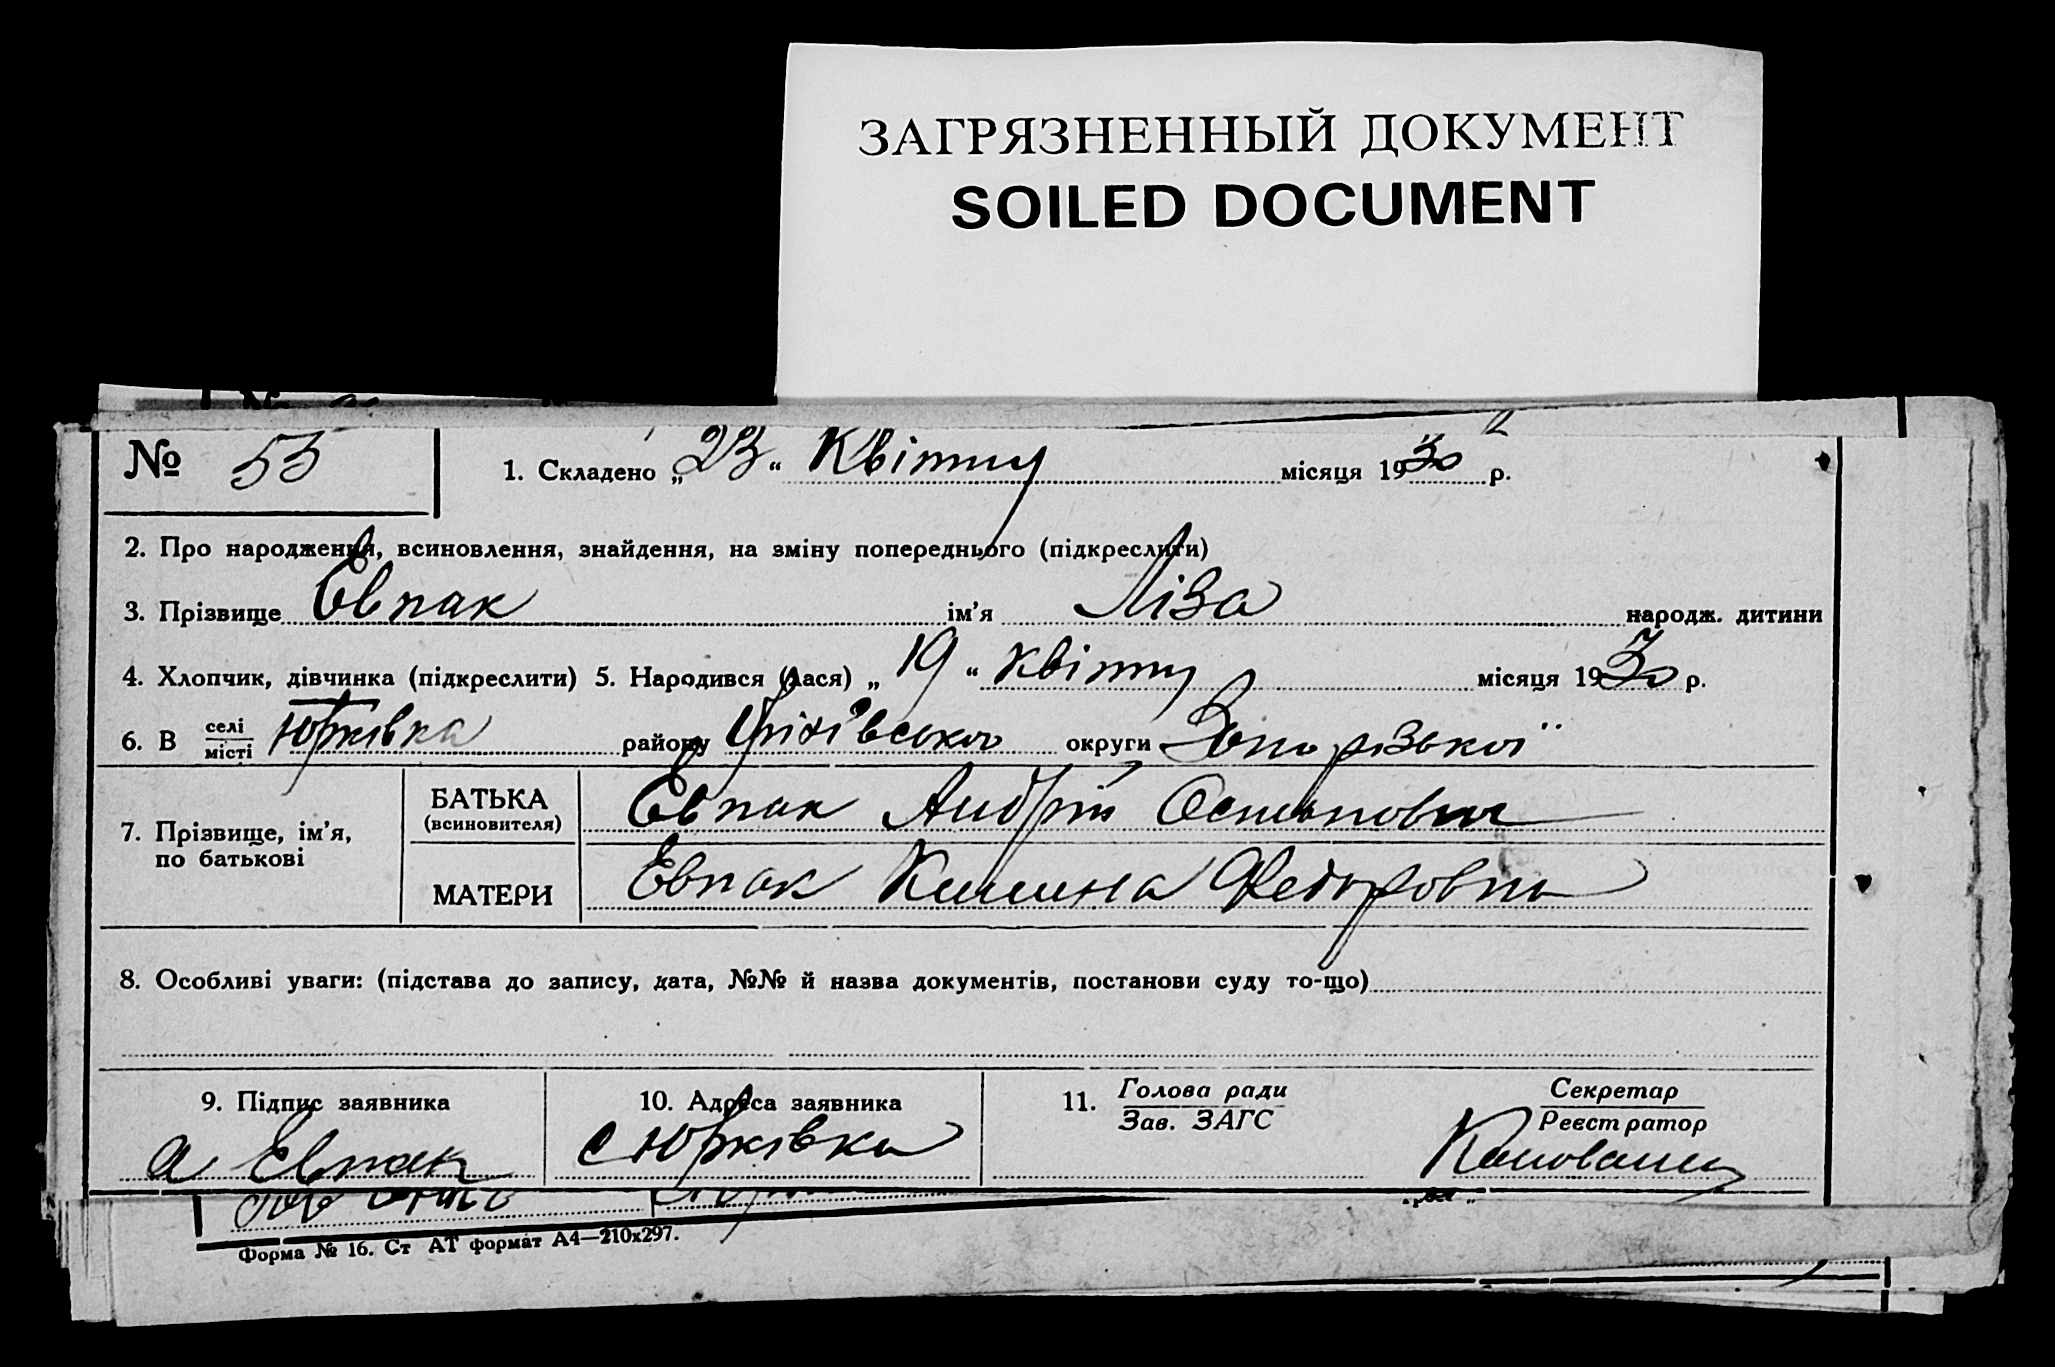 ЗАГРЯЗНЕННЫЙ ДОКУМЕНТ
SOILED DOCUMENT
№ 55
1. Складено „23“ Квітну місяця 1930 р.
2. Про народження, всиновлення, знайдення, на зміну попереднього (підкреслити)
3. Прізвище Євпак ім’я Ліза народж. дитини
4. Хлопчик, дівчинка (підкреслити) 5. Народився (лася) „19“ квітну місяця 1930 р.
6. В селі/місті Юрківка району Оріхівського округи Запорізької
7. Прізвище, ім’я, по батькові
БАТЬКА (всиновителя) Євпак Андрій Остапович
МАТЕРИ Евпак Килина Федоровна
8. Особливі уваги: (підстава до запису, дата, №№ й назва документів, постанови суду то-що)
9. Підпис заявника
а Евпак
10. Адреса заявника
с Юрківка
11. Голова ради
Зав. ЗАГС
Секретар
Реєстратор
Форма № 16. Ст АТ формат А4—210х297.